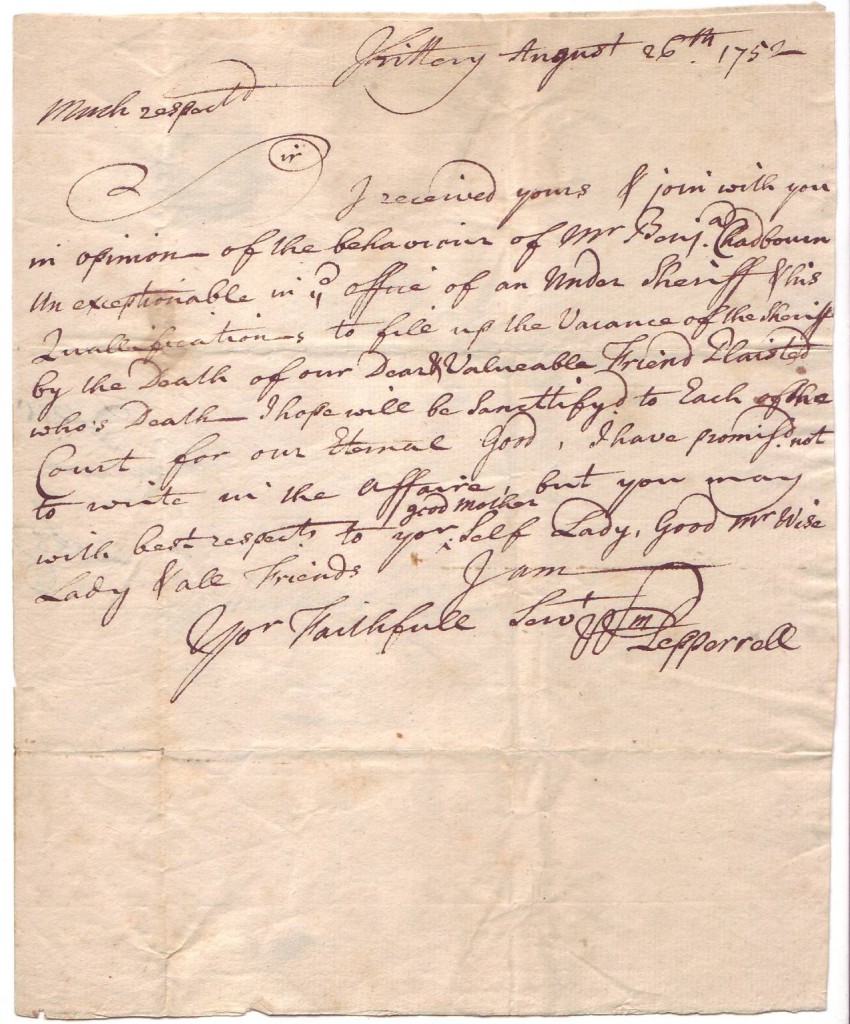 Kittery August 26th. 1752
Much respectd
Sir
I received yours & join with you
in opinion of the behaviour of Mr Benja. Chadbourn
Unexceptionable in ye office of an Under Sheriff & his
Quallifications to fill up the Vacance of the Sheriff
by the Death of our Dear & Valueable Friend Plaisted
who's Death I hope will be Sanctifyd. to Each of the
Court for our Eternal Good, I have promisd. not
to write in the affaire, but you may
good mother
with best respects to yor. ^ Self Lady, Good Mr Wise
Lady & all Friends I am
Yor Faithfull Servt Wm Pepperrell